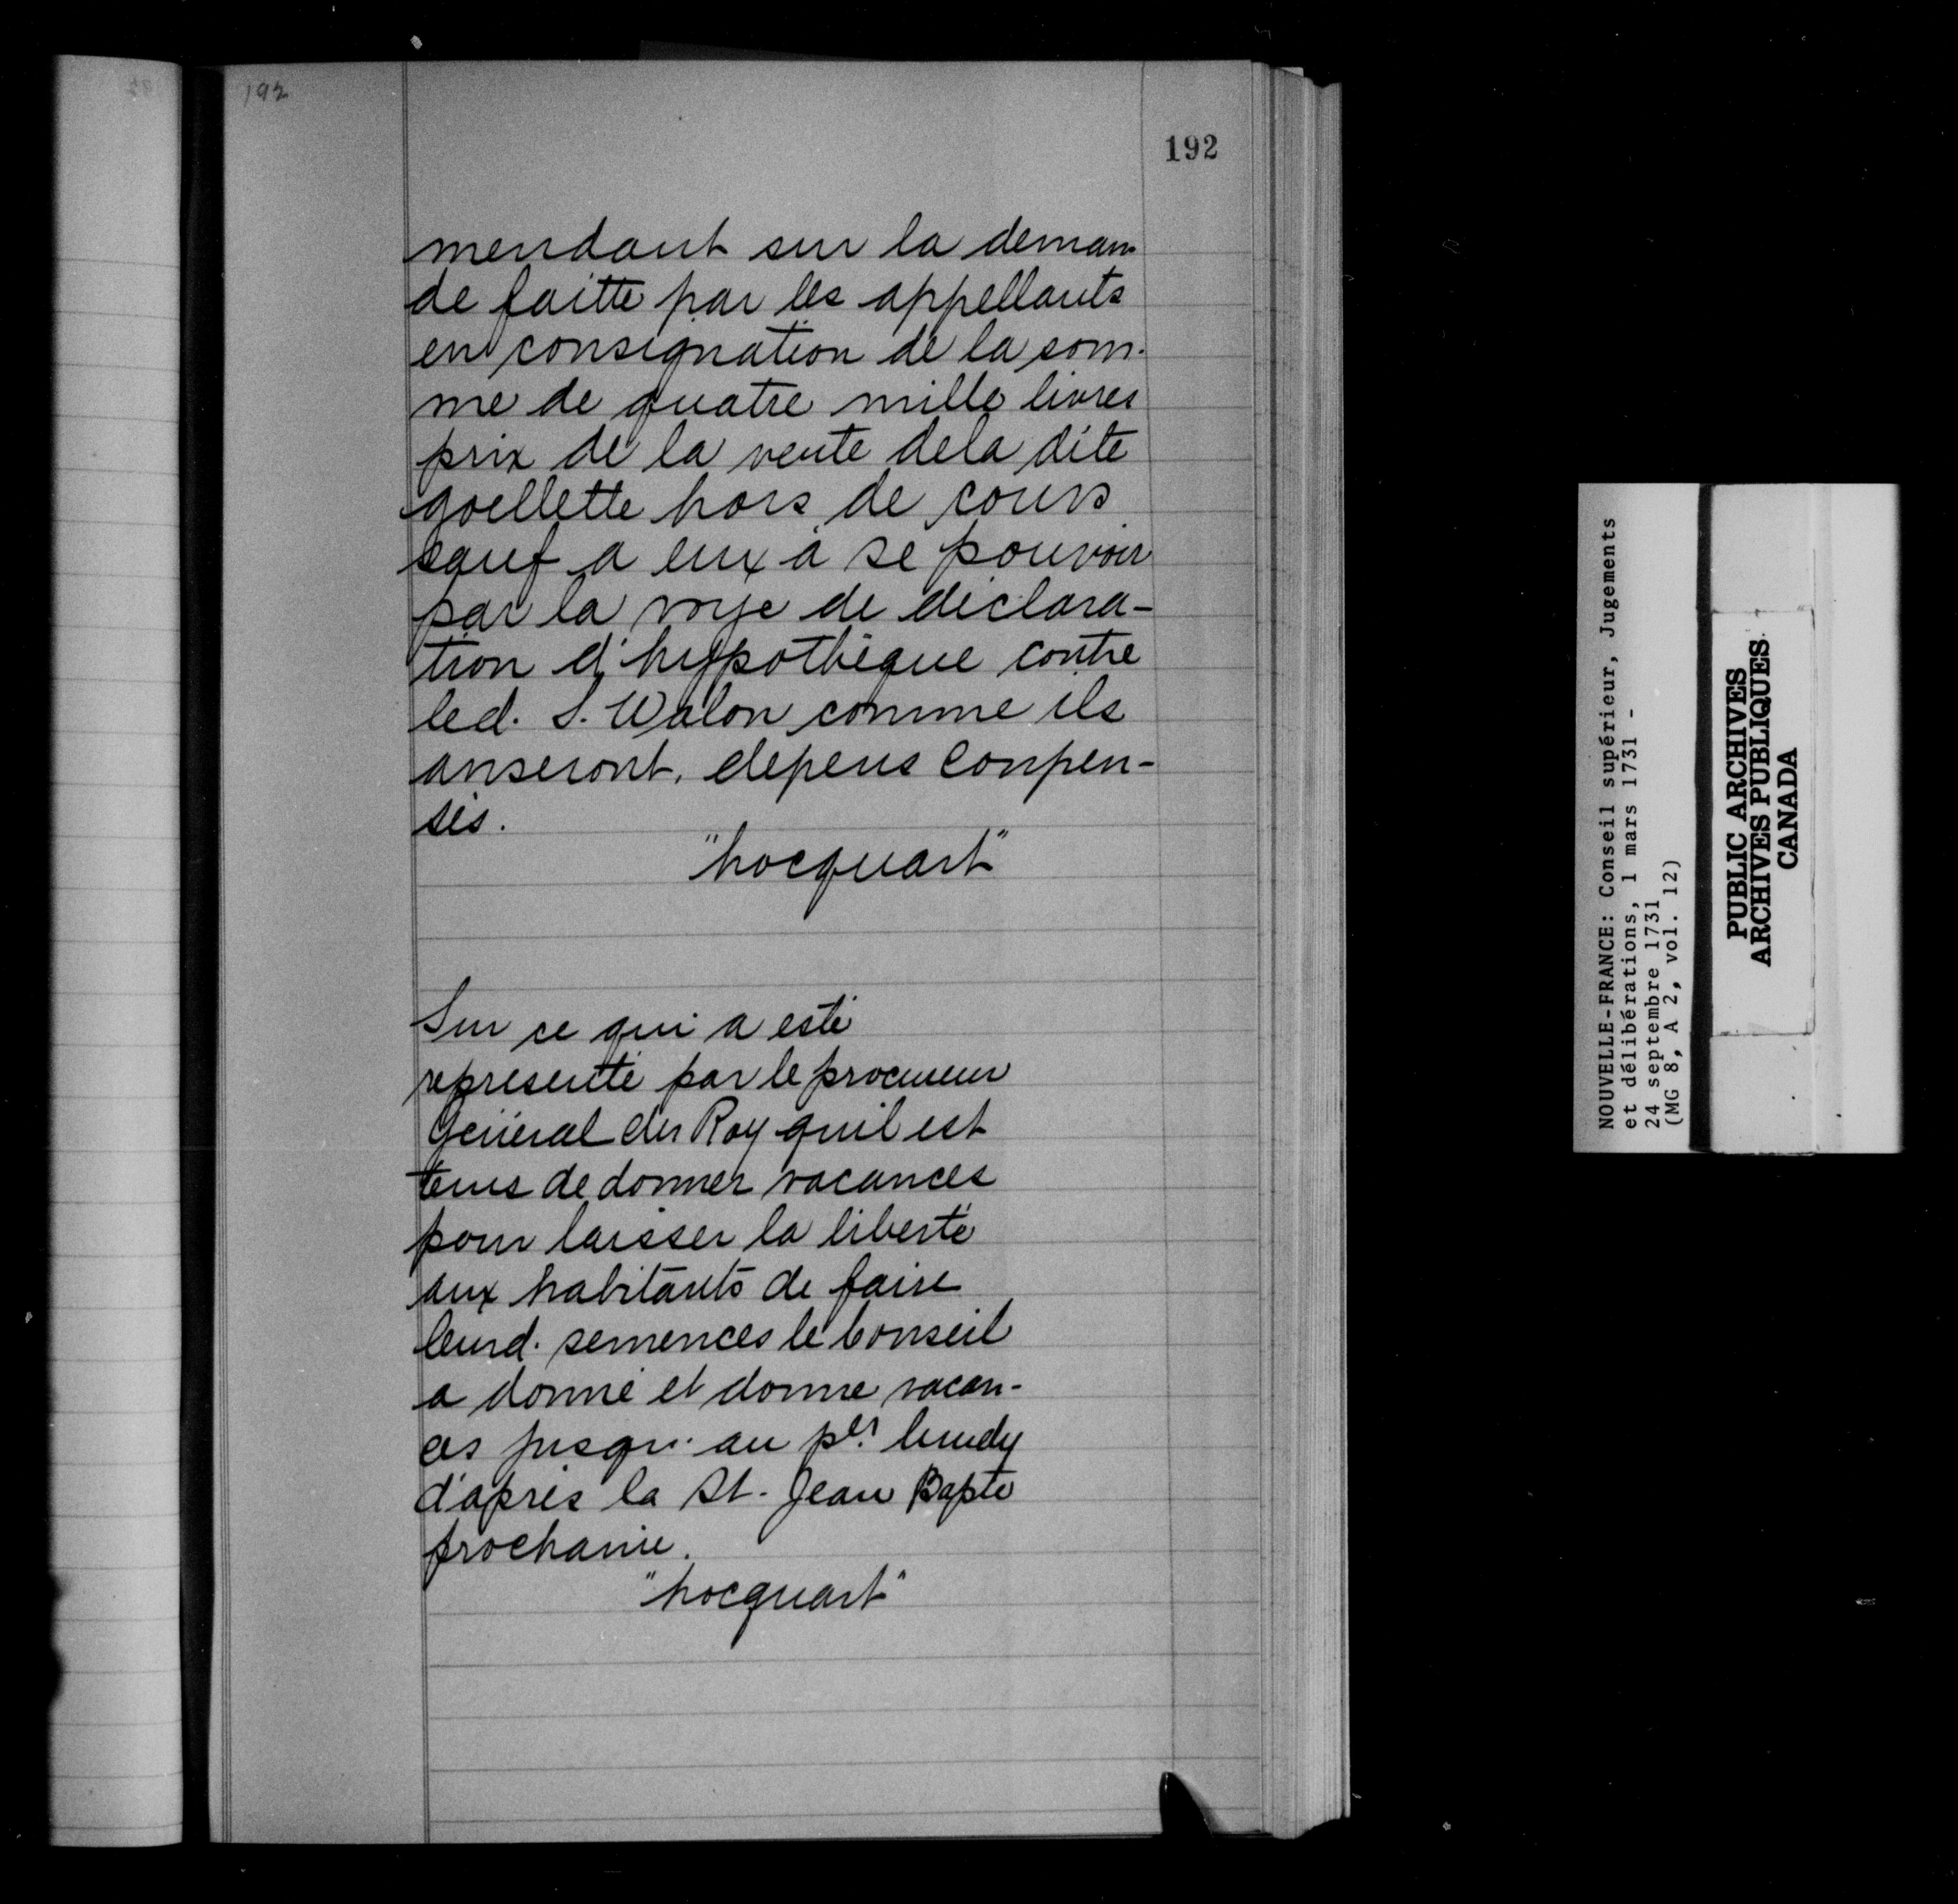 192
192
mendant sur la deman-
de faitte par les appellants
en consignation de la som-
me de quatre mille livres
prix de la vente dela dite
goellette hors de cours
sauf a eux à se pouvoir
par la voye de déclara-
tion d'hypothèque contre
led. S. Walon comme ils
anseront, depens conpen-
sés.
"hocquart"
Sur ce qui a esté
representé par le procureur
Général du Roy quil est
tems de donner vacances
pour laisser la liberté
aux habitants de faire
leurd. semences le Conseil
a donné et donne vacan-
ces jusqu'au per. lundy
d'après la St. Jean Bapte
prochaine.
"hocquart"
NOUVELLE-FRANCE: Conseil supérieur, Jugements
et délibérations, 1 mars 1731 -
24 septembre 1731
(MG 8, A 2, vol. 12)
PUBLIC ARCHIVES
ARCHIVES PUBLIQUES
CANADA